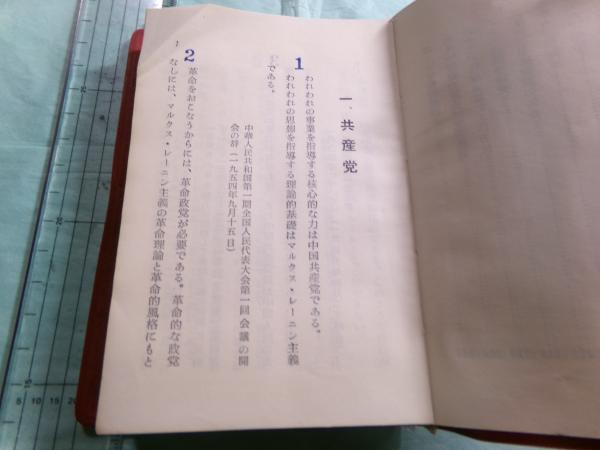 一、共産党
1
われわれの事業を指導する核心的な力は中国共産党である。
われわれの思想を指導する理論的基礎はマルクス・レーニン主義
である。
中華人民共和国第一期全国人民代表大会第一回会議の開
会の辞(一九五四年九月十五日)
2
革命をおこなうからには、革命政党が必要である。革命的な政党
なしには、マルクス・レーニン主義の革命理論と革命的風格にもと
1
5
10
15
20